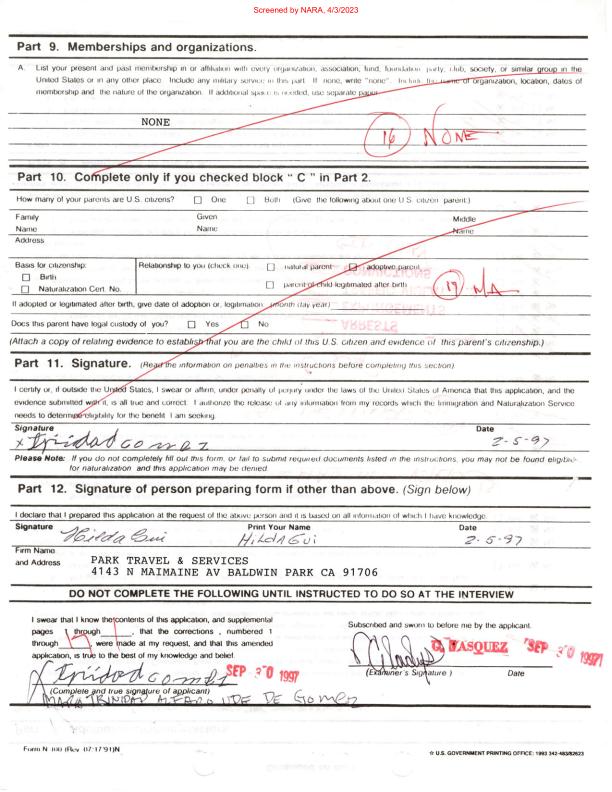 Screened by NARA, 4/3/2023
Part 9. Memberships and organizations.
A. List your present and past membership in or affiliation with every organization, association, fund, foundation, party, club, society, or similar group in the
United States or in any other place. Include any military service in this part. If none, write "none". Include the name of organization, location, dates of
membership and the nature of the organization. If additional space is needed, use separate paper.
NONE
16 NONE
Part 10. Complete only if you checked block " C " in Part 2.
How many of your parents are U.S. citizens? One Both (Give the following about one U.S. citizen parent:)
Family Name Given Name Middle Name
Address
Basis for citizenship: Relationship to you (check one): natural parent adoptive parent
Birth
Naturalization Cert. No. parent of child legitimated after birth
17 N/A
If adopted or legitimated after birth, give date of adoption or, legitimation: (month/day/year)
Does this parent have legal custody of you? Yes No
(Attach a copy of relating evidence to establish that you are the child of this U.S. citizen and evidence of this parent's citizenship.)
ARRESTS
Part 11. Signature. (Read the information on penalties in the instructions before completing this section)
I certify or, if outside the United States, I swear or affirm, under penalty of perjury under the laws of the United States of America that this application, and the
evidence submitted with it, is all true and correct. I authorize the release of any information from my records which the Immigration and Naturalization Service
needs to determine eligibility for the benefit I am seeking.
Signature Date
x trinidad gomez 2-5-97
Please Note: If you do not completely fill out this form, or fail to submit required documents listed in the instructions, you may not be found eligible
for naturalization and this application may be denied.
Part 12. Signature of person preparing form if other than above. (Sign below)
I declare that I prepared this application at the request of the above person and it is based on all information of which I have knowledge.
Signature Print Your Name Date
Hilda Gui HILDA GUI 2-5-97
Firm Name
and Address
PARK TRAVEL & SERVICES
4143 N MAIMAINE AV BALDWIN PARK CA 91706
DO NOT COMPLETE THE FOLLOWING UNTIL INSTRUCTED TO DO SO AT THE INTERVIEW
I swear that I know the contents of this application, and supplemental
pages 1 through , that the corrections , numbered 1
through were made at my request, and that this amended
application, is true to the best of my knowledge and belief.
Subscribed and sworn to before me by the applicant.
X trinidad gomez SEP 30 1997
(Complete and true signature of applicant)
MARIA TRINIDAD ALFARO VDE DE GOMEZ
G. VASQUEZ SEP 30 1997
(Examiner's Signature ) Date
Form N-400 (Rev. 07/17/91)N
☆ U.S. GOVERNMENT PRINTING OFFICE: 1993 342-483/82623